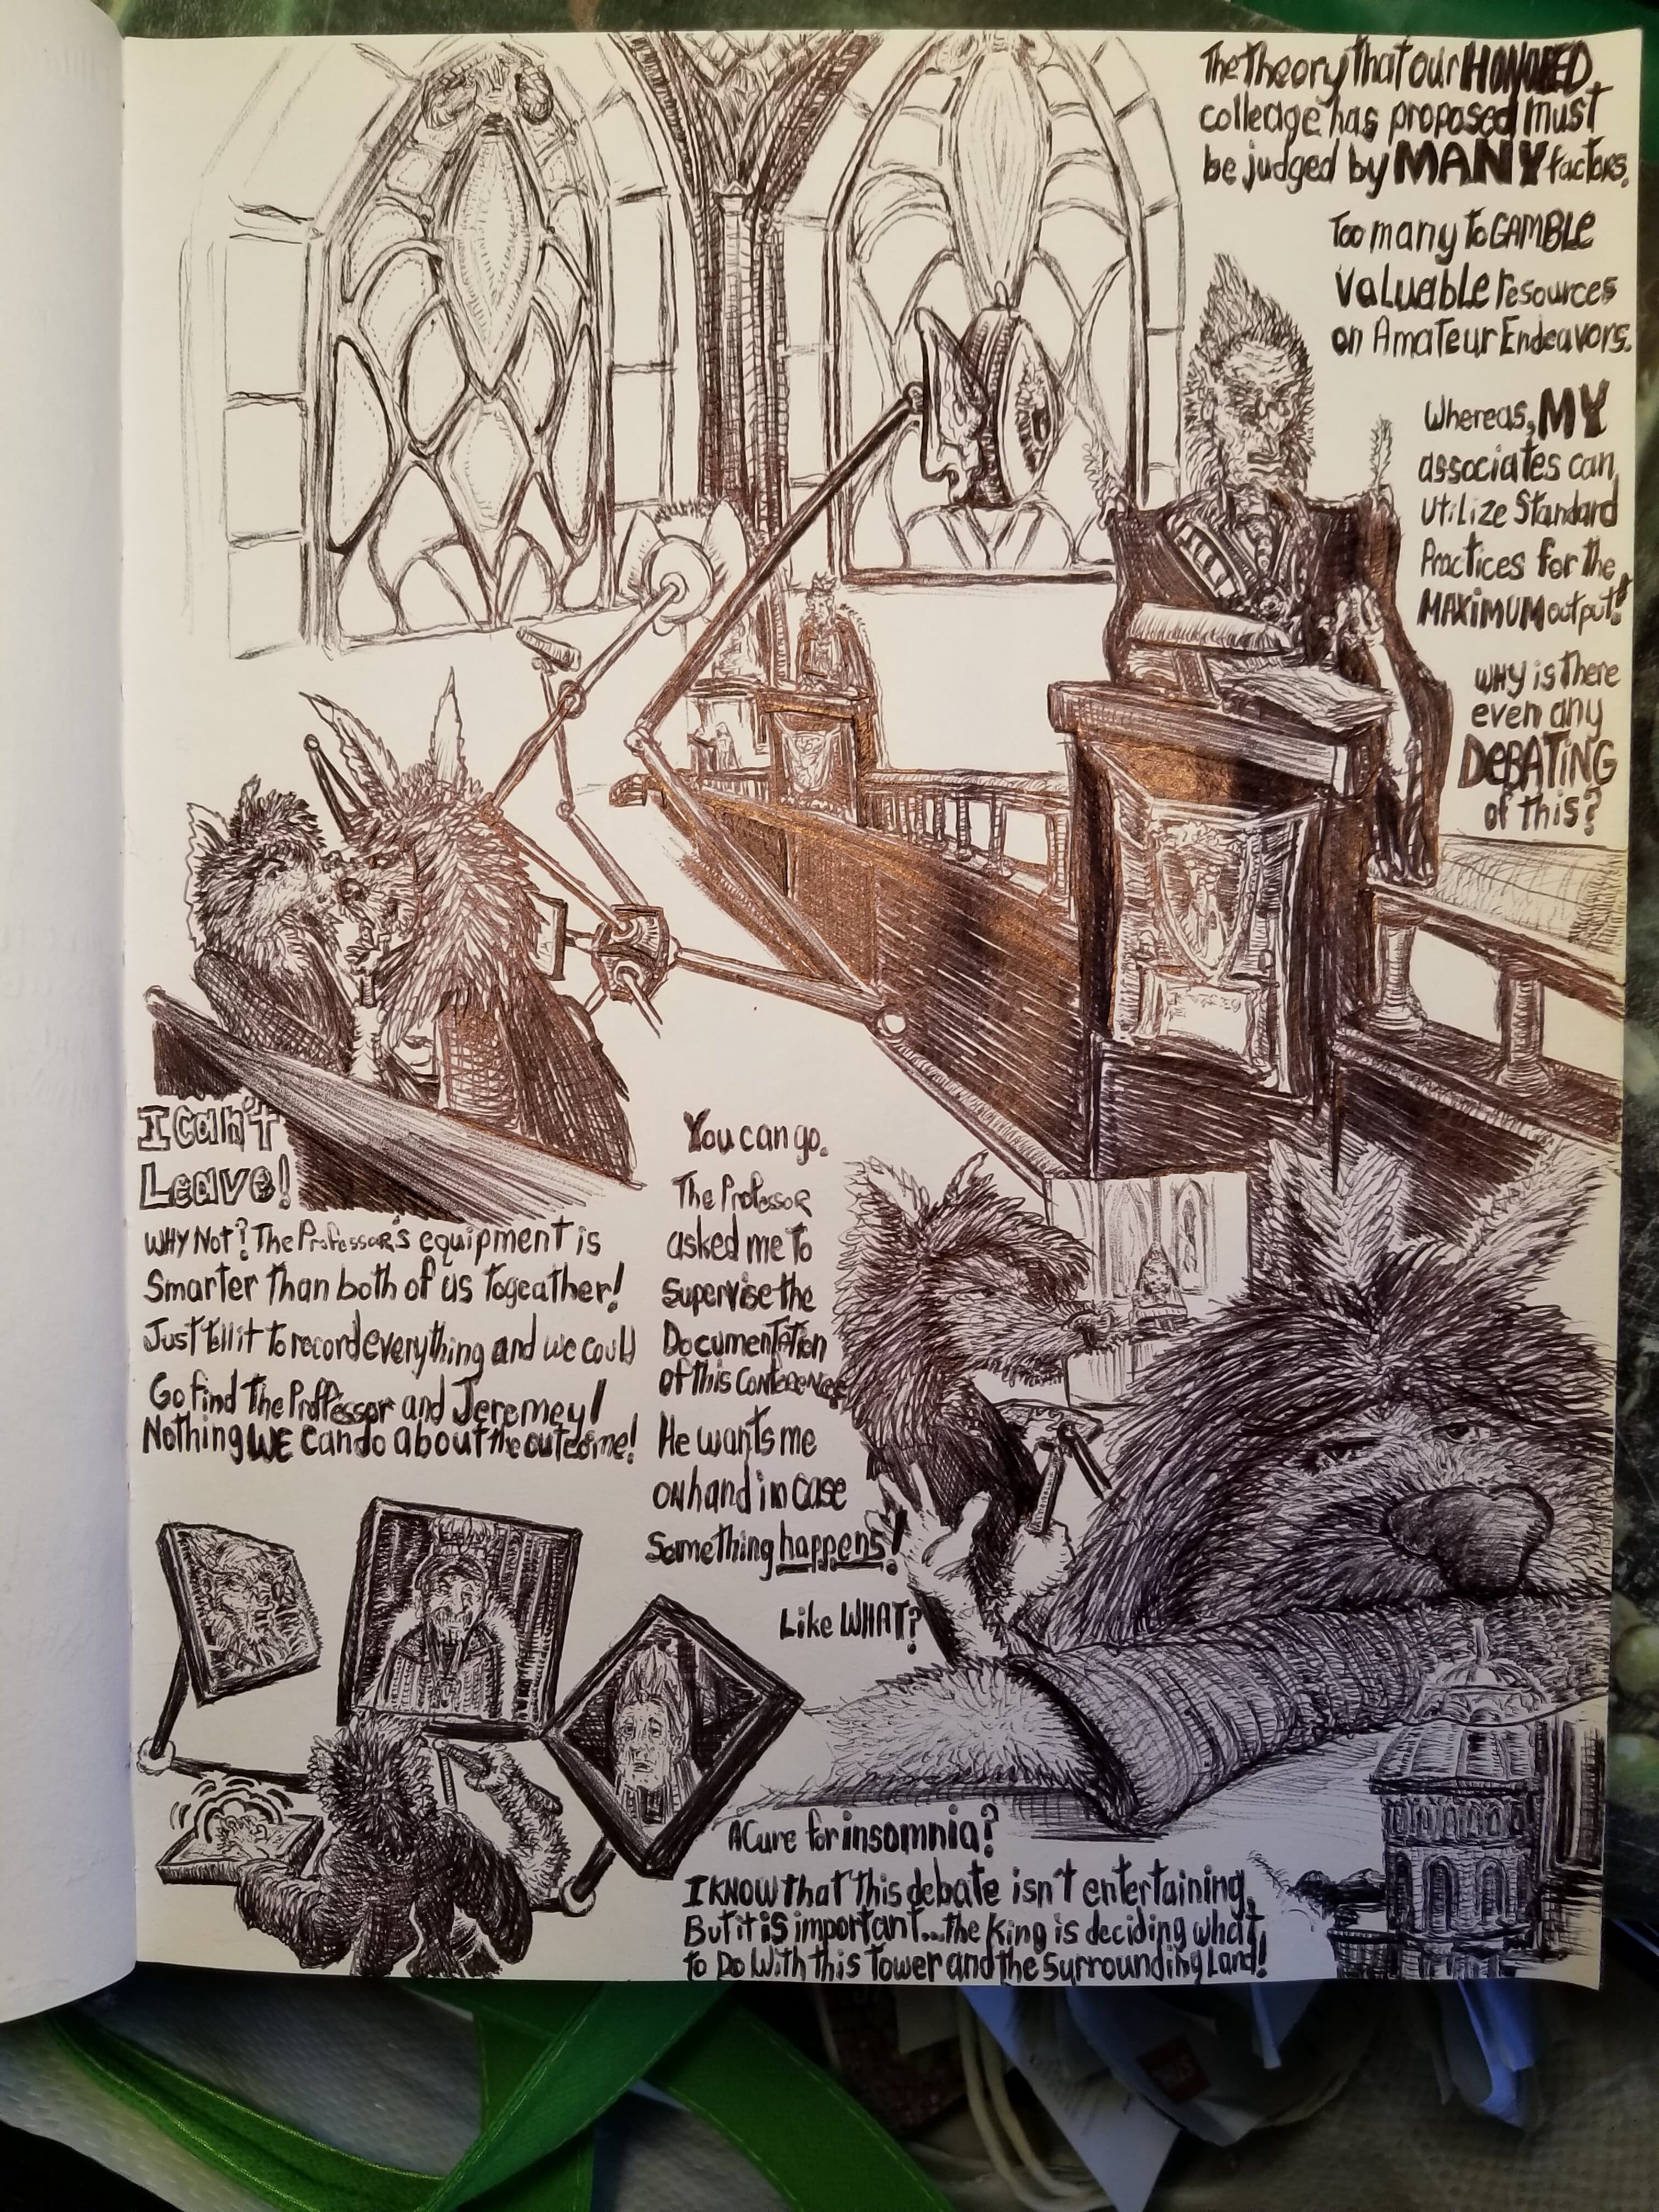 The Theory that our HONORED
colleage has proposed must
be judged by MANY factors.
Too many to GAMBLE
Valuable resources
on Amateur Endeavors.
Whereas, MY
associates can
utilize Standard
Practices for the
MAXIMUM output!
WHY is there
even any
DEBATING
of this?
I can't
Leave!
WHY NOT? The Professor's equipment is
Smarter Than both of us Togeather!
Just tell it to record everything and we could
Go find The Proffessor and Jeremey!
Nothing WE can do about the outcome!
You can go.
The Professor
asked me To
Supervise the
Documentation
of this Conference
He wants me
on hand in case
Something happens!
Like WHAT?
A Cure for insomnia?
I KNOW that this debate isn't entertaining,
But it is important...the King is deciding what
to Do With this Tower and the Surrounding Land!